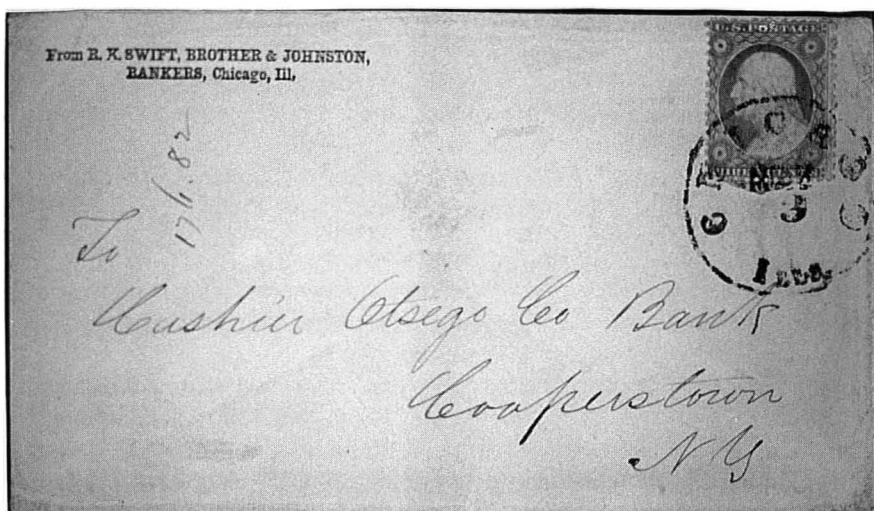 From R. K. SWIFT, BROTHER & JOHNSTON,
BANKERS, Chicago, Ill,
U.S. POSTAGE
CHICAGO
3
ILLS.
17/1.82
To
Cashier Otsego Co Bank
Cooperstown
NY